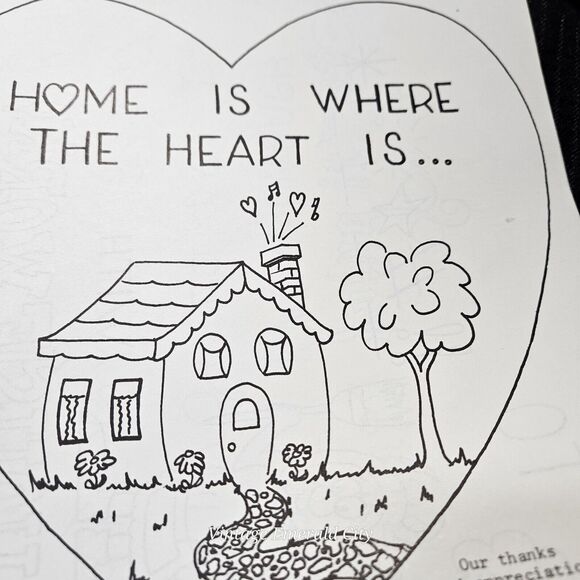 HOME IS WHERE
THE HEART IS...
Vintage Emerald City
Our thanks